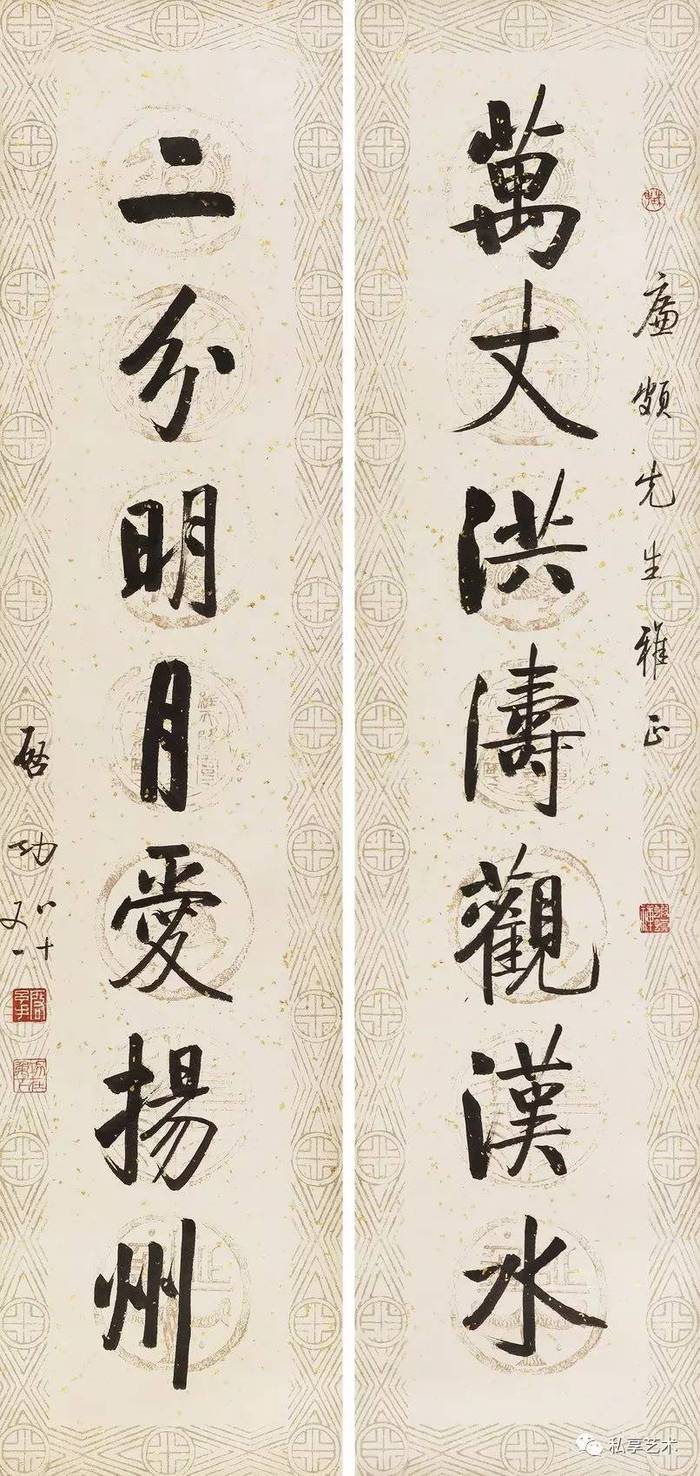 廉頗先生雅正
萬丈洪濤觀漢水
二分明月愛揚州
啓功八十又一
私享艺术